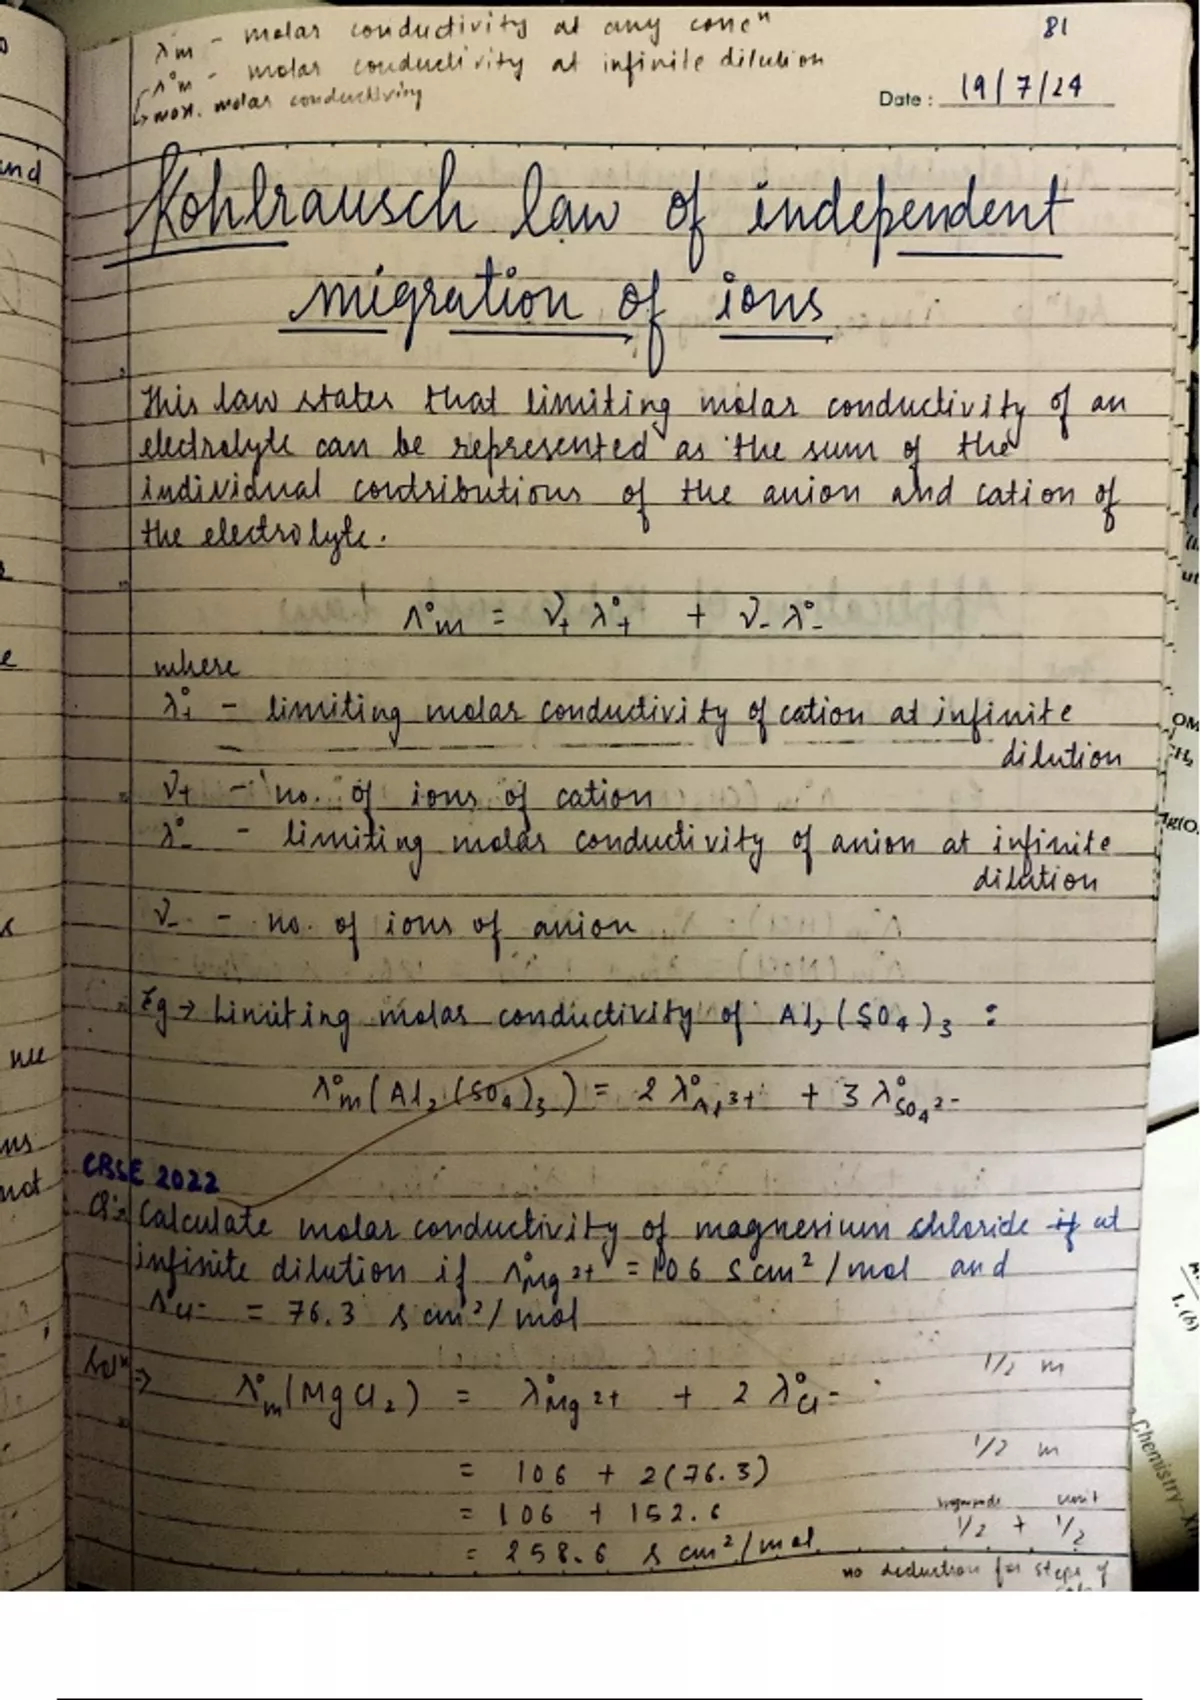 λm - molar conductivity at any concⁿ
81
Λ°m - molar conductivity at infinite dilution
↳ max. molar conductivity
Date : 19/7/24
Kohlrausch law of independent
migration of ions
This law states that limiting molar conductivity of an
electrolyte can be represented as the sum of the
individual contributions of the anion and cation of
the electrolyte.
Λ°m = ν₊ λ°₊ + ν₋ λ°₋
where
λ°₊ - limiting molar conductivity of cation at infinite
dilution
ν₊ - no. of ions of cation
λ°₋ - limiting molar conductivity of anion at infinite
dilution
ν₋ - no. of ions of anion
Eg → Limiting molar conductivity of Al₂(SO₄)₃ :
Λ°m (Al₂(SO₄)₃) = 2 λ°Al³⁺ + 3 λ°SO₄²⁻
CBSE 2022
Q: Calculate molar conductivity of magnesium chloride if at
infinite dilution if Λ°Mg²⁺ = 106 S cm²/mol and
Λ°Cl⁻ = 76.3 S cm²/mol
Solⁿ ⇒ Λ°m (MgCl₂) = λ°Mg²⁺ + 2 λ°Cl⁻ 1/2 m
= 106 + 2(76.3) 1/2 m
= 106 + 152.6 unit
= 258.6 S cm²/mol 1/2 + 1/2
no deduction for steps of
Chemistry